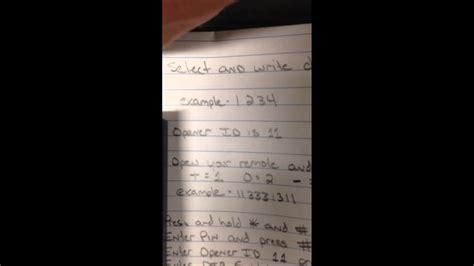 Select and write
example - 1234
Opener ID is 11
Open your remote and
T = 1 0 = 2 - =
example - 113331311
Press and hold * and #
Enter Pin and press #
Enter Opener ID 11
Enter